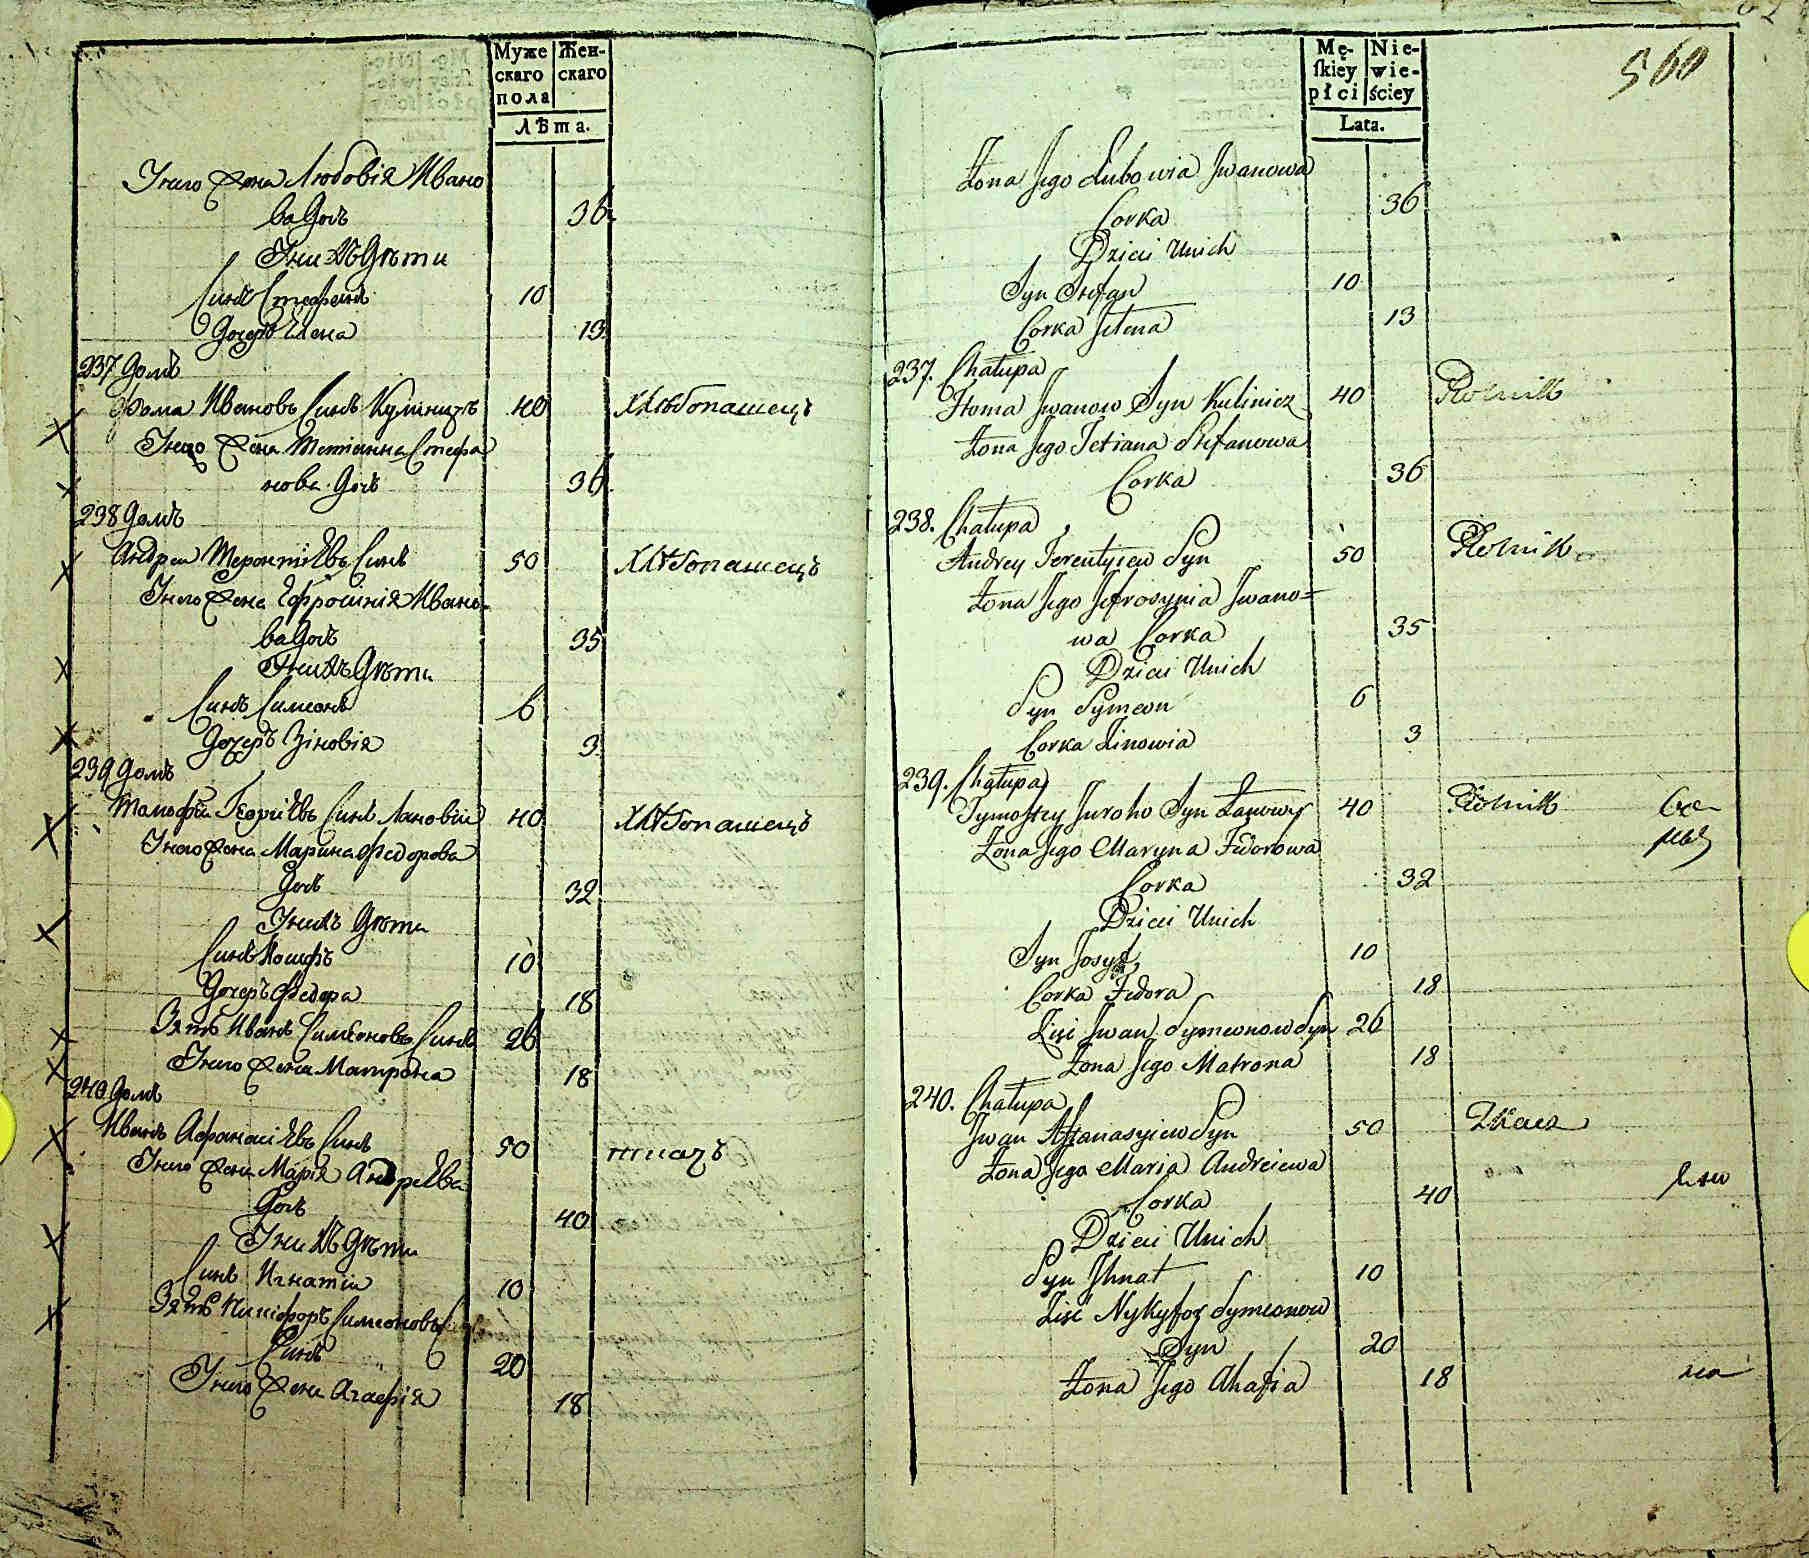 Муже
скаго
пола
Жен-
скаго
Лѣта.
У него жена Любовія Ивано
ва Дочь 36
У нихъ Дѣти
Синъ Стефанъ 10
Дочерь Елена 13
237 Домъ
Фома Ивановъ Синъ Кулѣничъ 40 Хлѣбопашецъ
У него жена Тетіанна Стефа
нова Дочь 36
238 Домъ
Андреи Терентіевъ Синъ 50 Хлѣбопашецъ
У него жена Ефросинія Ивано-
ва Дочь 35
У нихъ Дѣти
Синъ Симеонъ 6
Дочеръ Зіновія 3
239 Домъ
Тимофіи Георгіевъ Синъ Лановіи 40 Хлѣбопашецъ
У него жена Марина Федорова
Дочь 32
У нихъ Дѣти
Синъ Іосифъ 10
Дочерь Федора 18
Зять Иванъ Симеоновъ Синъ 26
У него жена Матрона 18
240 Домъ
Иванъ Афанасіевъ Синъ 50 ткачъ
У него жена Марія Андреева
Дочь 40
У нихъ Дѣти
Синъ Игнатіи 10
Зять Никіфоръ Симеоновъ
Синъ 20
У него жена Агафія 18
Mę-
ſkiey
płci
Nie-
wie-
ściey
Lata.
560
Żona Jego Lubowia Jwanowa
Corka 36
Dzieci Unich
Syn Stefan 10
Corka Jelena 13
237. Chałupa
Homa Jwanow Syn Kulinicz 40 Rolnik
Żona Jego Tetiana Stefanowa
Corka 36
238. Chałupa
Andrey Terentyiew Syn 50 Rolnik
Żona Jego Jefrosynia Jwano=
wa Corka 35
Dzieci Unich
Syn Symeon 6
Corka Zinowia 3
239. Chałupa
Tymoftey Juroho Syn Łanowy 40 Rolnik
Żona Jego Maryna Fedorowa
Corka 32
Dzieci Unich
Syn Josyf 10
Corka Fedora 18
Zięć Jwan Symeonow Syn 26
Żona Jego Matrona 18
240. Chałupa
Jwan Afanasyiew Syn 50 Tkacz
Żona Jego Maria Andreiewa
Corka 40
Dzieci Unich
Syn Jhnat 10
Zięć Nykyfor Symeonow
Syn 20
Żona Jego Ahafia 18